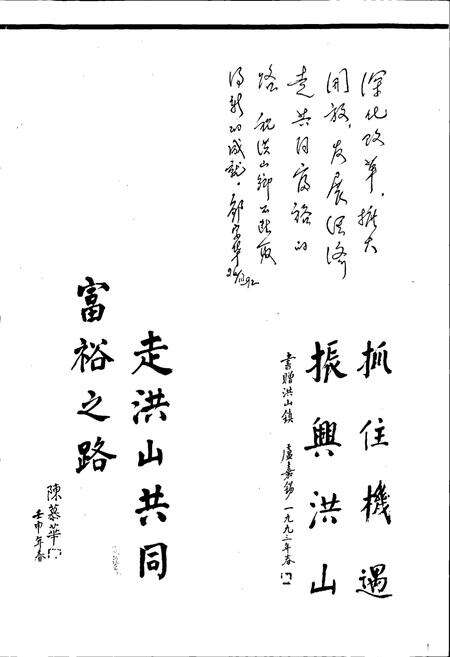 深化改革，擴大
開放，发展经济
走共同富裕的
路 祝洪山鄉不断取
得新的成就。
抓住機遇
振興洪山
書贈洪山鎮 盧嘉錫 一九九三年春
走洪山共同
富裕之路
陳慕華
壬申年春